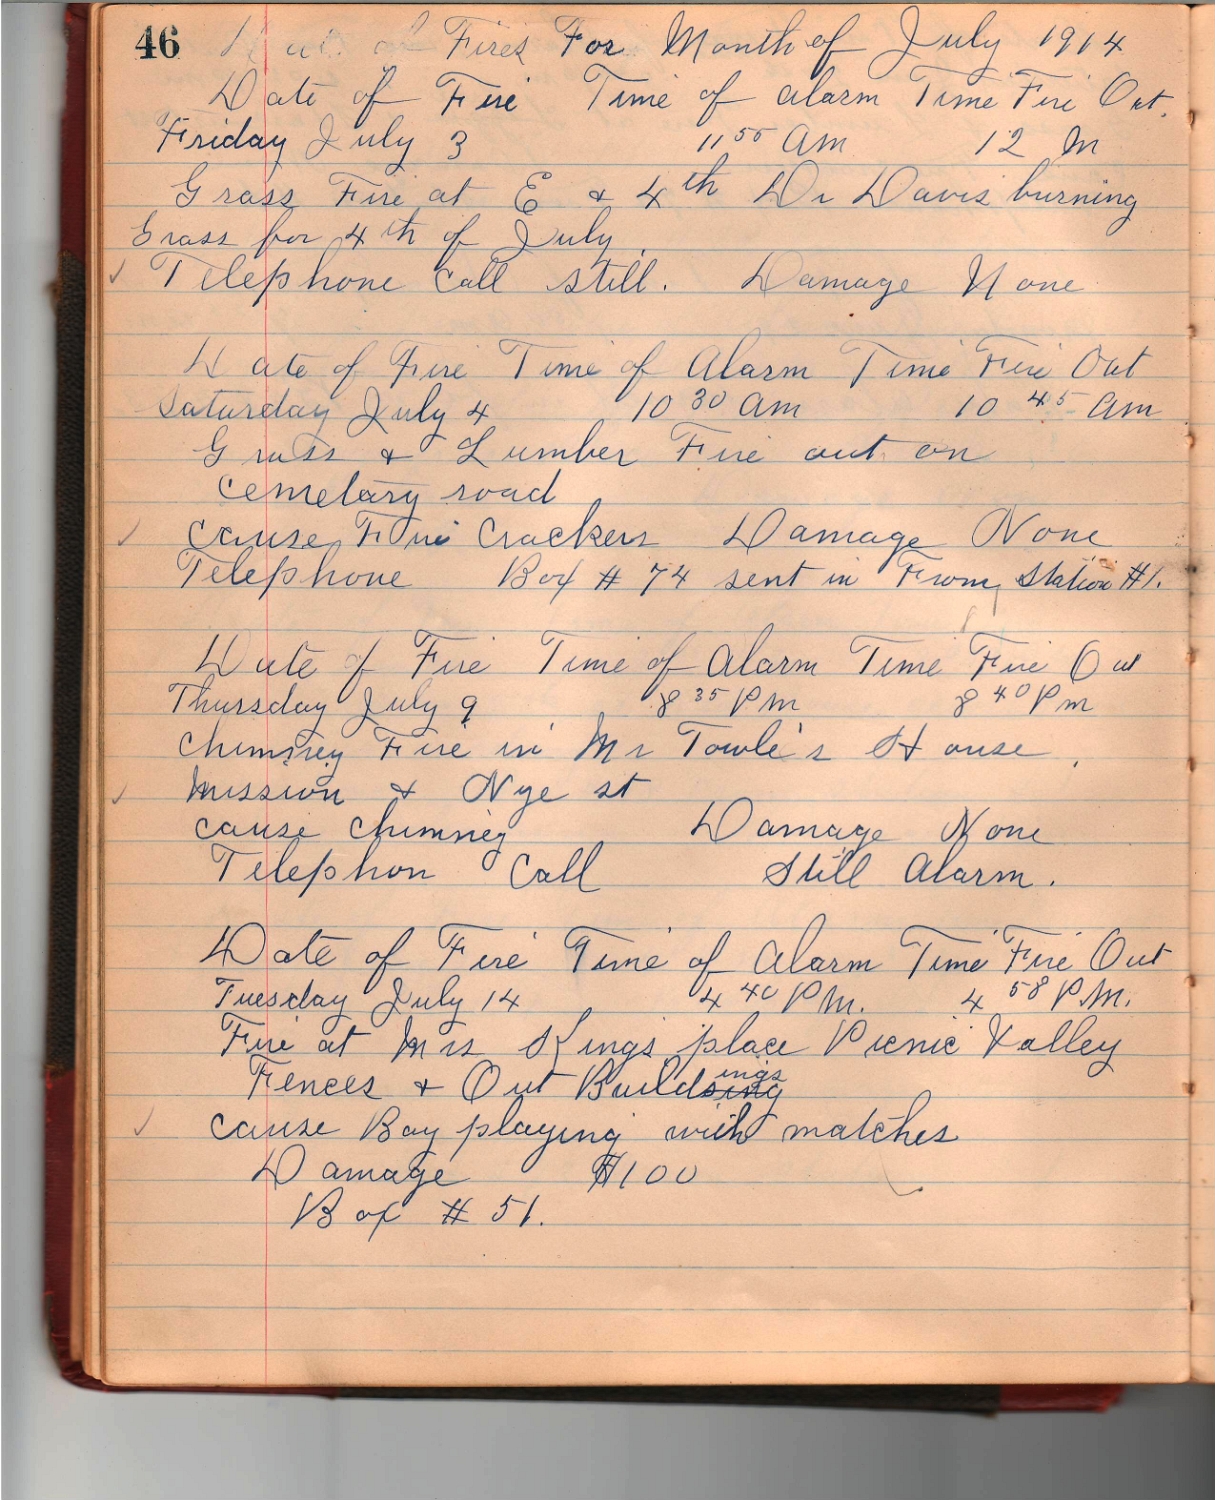 46 of Fires For Month of July 1914
Date of Fire Time of alarm Time Fire Out.
Friday July 3 11 55 Am 12 M
Grass Fire at E & 4th Dr Davis burning
Grass for 4th of July.
✓ Telephone Call Still. Damage None
Date of Fire Time of Alarm Time Fire Out
Saturday July 4 10 30 am 10 45 am
Grass & Lumber Fire out on
cemetary road
✓ cause Fire Crackers Damage None
Telephone Box # 74 sent in From Station #1.
Date of Fire Time of Alarm Time Fire Out
Thursday July 9 8 35 Pm 8 40 Pm
chimney Fire in Mr Towle's House,
✓ Mission & Nye st
cause chimney Damage None
Telephon Call Still Alarm.
Date of Fire Time of Alarm Time Fire Out
Tuesday July 14 4 40 P M. 4 58 P.M.
Fire at Mrs Kings place Picnic Valley
Fences & Out Buildsing ings
✓ cause Boy playing with matches
Damage $100
Box # 51.